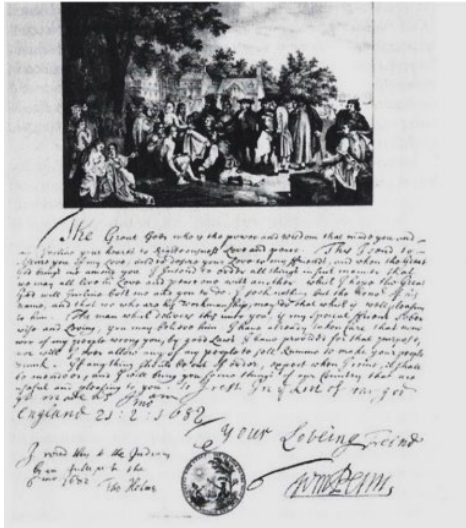 The Great God who is the power and wisdom that made you and
me Incline your hearts to Righteousness Love and peace. This I send to
assure you of my Love, and to desire your Love to my friends, and when the Great
God brings me among you I Intend to order all things in such manner that
we may all live in Love and peace one with another which I hope the Great
God will Incline both me and you to do. I seek nothing but the honor of his
name, and that we who are his workmanship, may do that which is well pleasing
to him. The man which delivers this unto you, is my Special friend Sober
wise and Loving, you may believe him. I have already taken Care that none
of my people wrong you, by good Laws I have provided for that purpose,
nor will I ever allow any of my people to sell Rumme to make your people
drunk. If any thing should be out of order, expect when I come, it shall
be mended, and I will bring you some things of our Country that are
useful and pleasing to you. So I rest In ye Love of our god
yt made us I am
England 21: 2: 1682
Your Loveing Friend
I read this to the Indians
by an Interpreter the
6 mo 1682
Tho Holme
Wm Penn